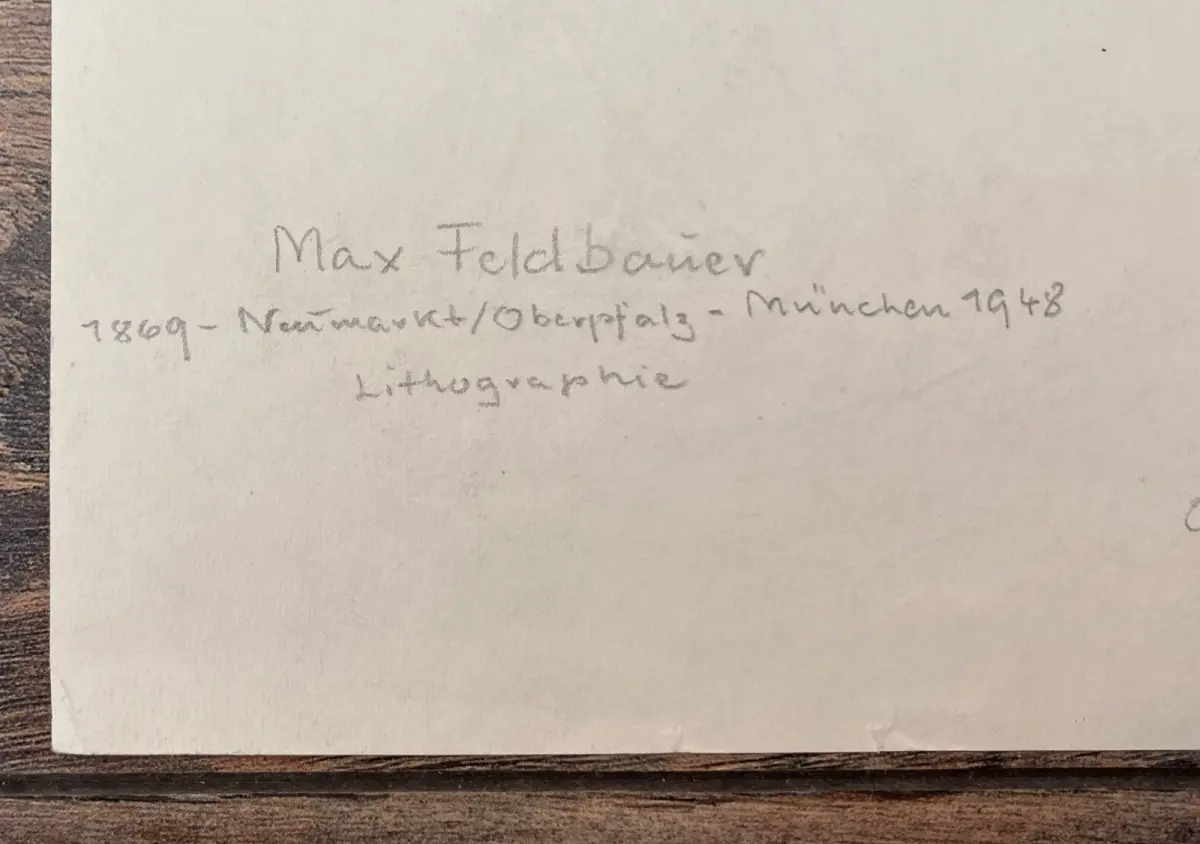 Max Feldbauer
1869 - Neumarkt/Oberpfalz - München 1948
Lithographie